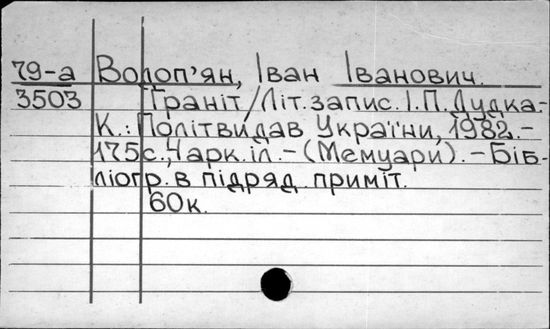 79-а Волоп'ян, Іван Іванович.
3503 Граніт/Літ. запис. І.П. Дудка.-
К.: Політвидав України, 1982.-
175 с., 4 арк. іл. - (Мемуари). - Біб-
ліогр. в підряд. приміт.
60 к.